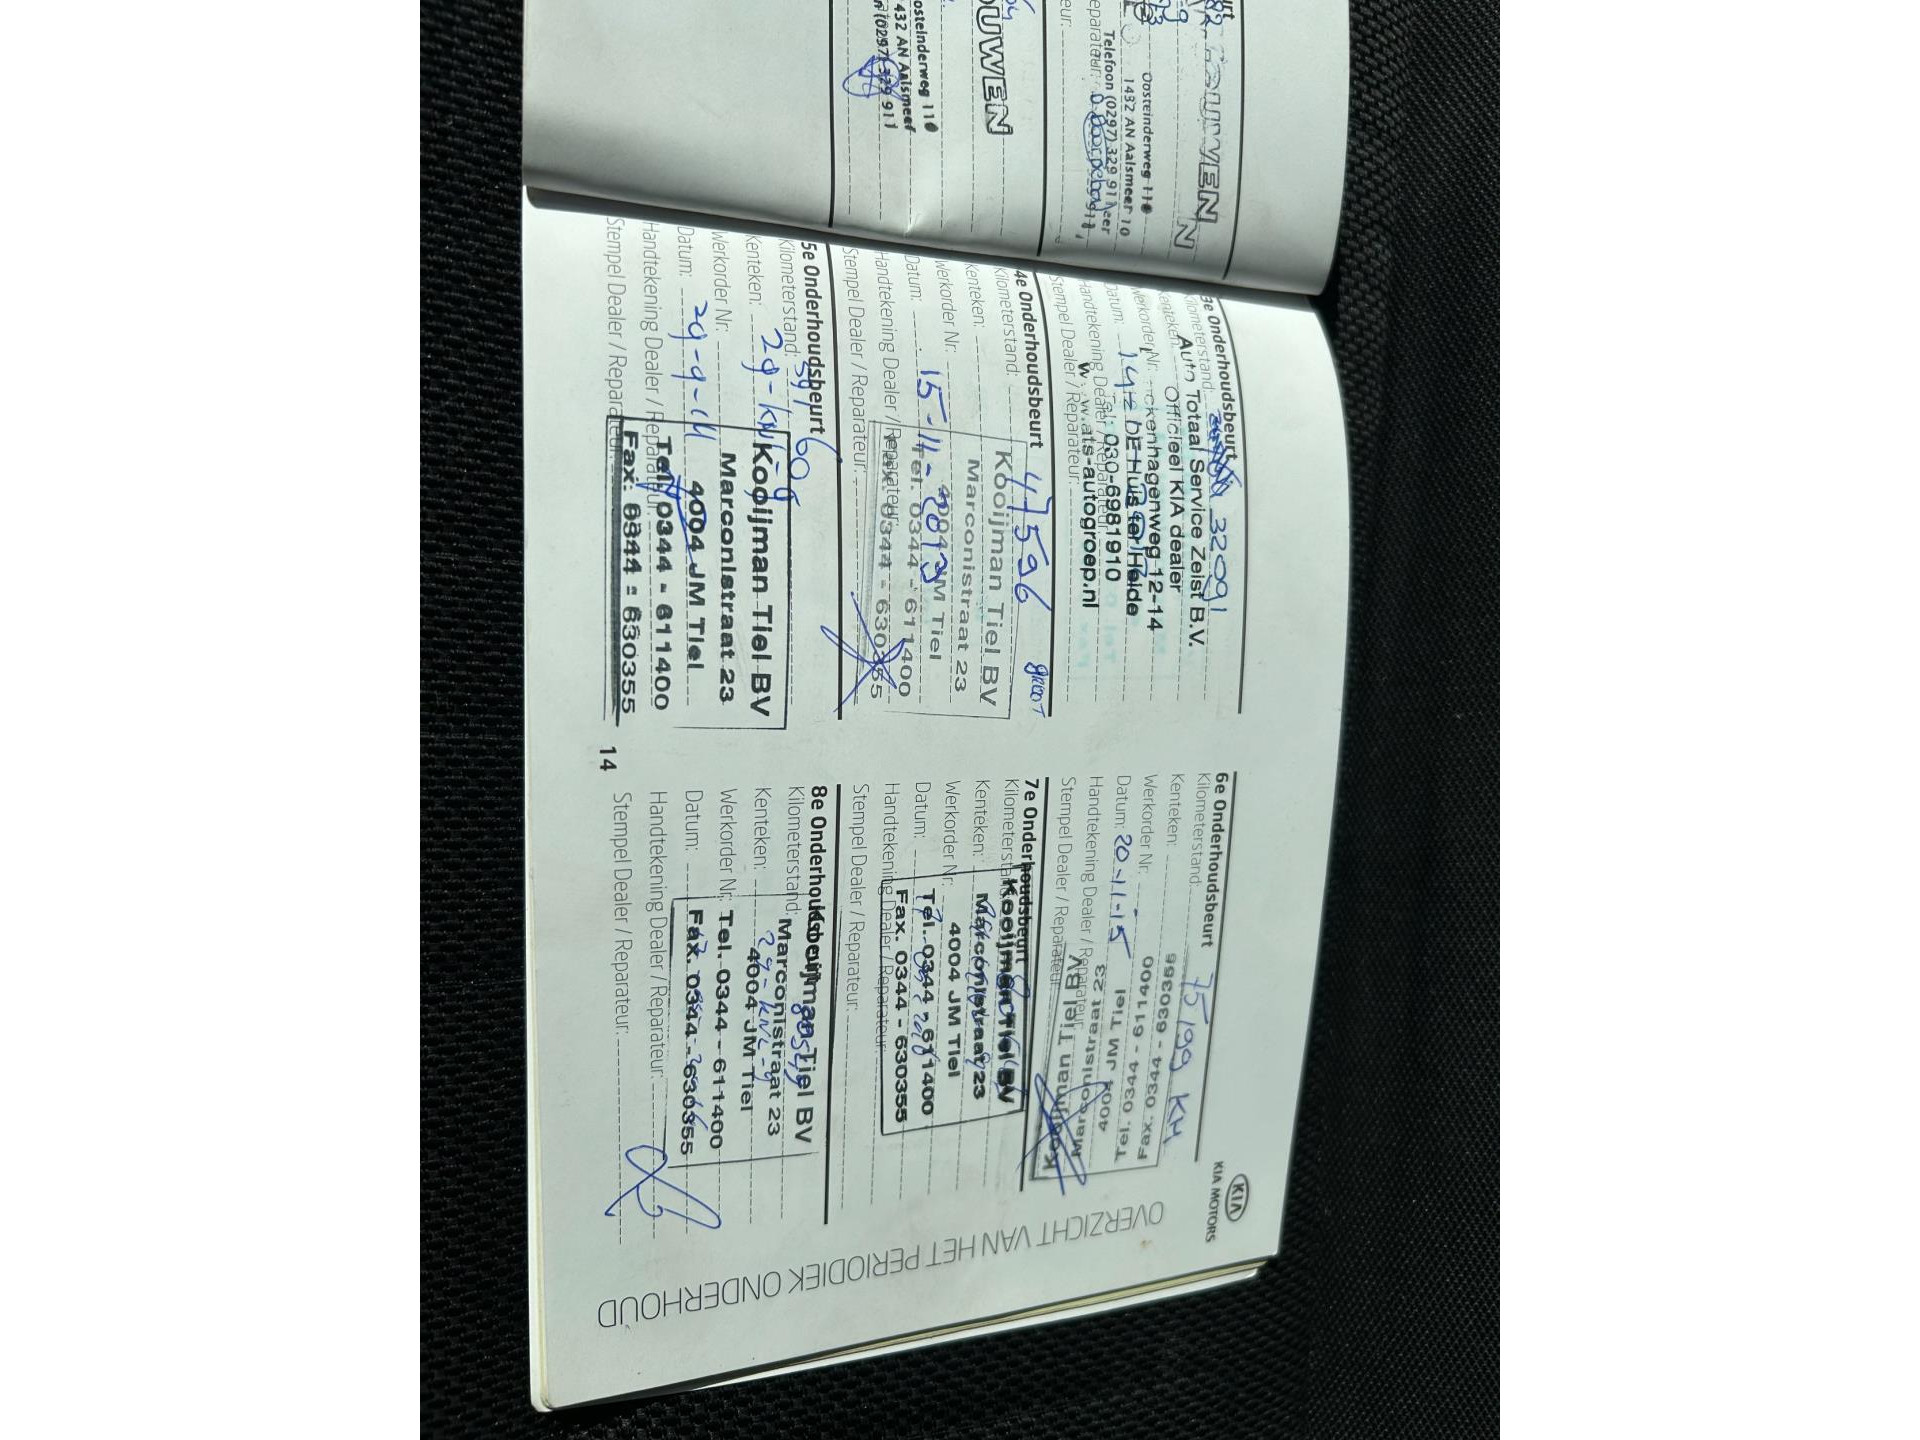 OUWEN
Oosteinderweg 110
1432 AN Aalsmeer
(0297) 329 911
OUWEN
Oosteinderweg 110
1432 AN Aalsmeer
Telefoon (0297) 329 911
3e Onderhoudsbeurt
Kilometerstand: 32091
Kenteken:
Werkorder Nr:
Datum:
Handtekening Dealer / Reparateur:
Stempel Dealer / Reparateur:
Auto Totaal Service Zeist B.V.
Officieel KIA dealer
ckenhagenweg 12-14
DE Huis ter Heide
030-6981910
w.ats-autogroep.nl
4e Onderhoudsbeurt
Kilometerstand: 47596 GROOT
Kenteken:
Werkorder Nr:
Datum: 15-11-2013
Handtekening Dealer / Reparateur:
Stempel Dealer / Reparateur:
Kooijman Tiel BV
Marconistraat 23
4004 JM Tiel
Tel. 0344 - 611400
Fax. 0344 - 630355
5e Onderhoudsbeurt
Kilometerstand:
Kenteken:
Werkorder Nr:
Datum: 29-9-14
Handtekening Dealer / Reparateur:
Stempel Dealer / Reparateur:
Kooijman Tiel BV
Marconistraat 23
4004 JM Tiel
Tel. 0344 - 611400
Fax. 0344 - 630355
14
KIA
KIA MOTORS
OVERZICHT VAN HET PERIODIEK ONDERHOUD
6e Onderhoudsbeurt
Kilometerstand: 75199 KM
Kenteken:
Werkorder Nr:
Datum: 20-11-15
Handtekening Dealer / Reparateur:
Stempel Dealer / Reparateur:
Kooijman Tiel BV
Marconistraat 23
4004 JM Tiel
Tel. 0344 - 611400
Fax. 0344 - 630355
7e Onderhoudsbeurt
Kilometerstand:
Kenteken:
Werkorder Nr:
Datum:
Handtekening Dealer / Reparateur:
Stempel Dealer / Reparateur:
Kooijman Tiel BV
Marconistraat 23
4004 JM Tiel
Tel. 0344 - 611400
Fax. 0344 - 630355
8e Onderhoudsbeurt
Kilometerstand:
Kenteken:
Werkorder Nr:
Datum:
Handtekening Dealer / Reparateur:
Stempel Dealer / Reparateur:
Kooijman Tiel BV
Marconistraat 23
4004 JM Tiel
Tel. 0344 - 611400
Fax. 0344 - 630355